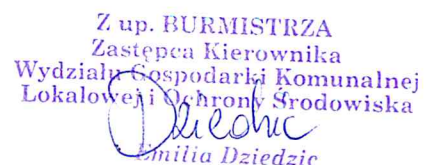 Z up. BURMISTRZA
Zastępca Kierownika
Wydziału Gospodarki Komunalnej
Lokalowej i Ochrony Środowiska
Dziedzic
Emilia Dziedzic